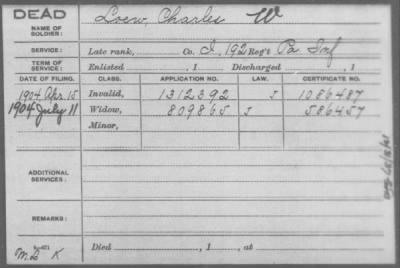 DEAD
NAME OF SOLDIER: Loew, Charles W
SERVICE: Late rank, Co. I, 192 Reg't Pa. Inf
TERM OF SERVICE: Enlisted , 1 Discharged , 1
DATE OF FILING. CLASS. APPLICATION NO. LAW. CERTIFICATE NO.
1904 Apr. 15 Invalid, 1312392 J 1086487
1904 July 11 Widow, 809865 J 586457
Minor,
ADDITIONAL SERVICES:
REMARKS:
Died , 1 , at